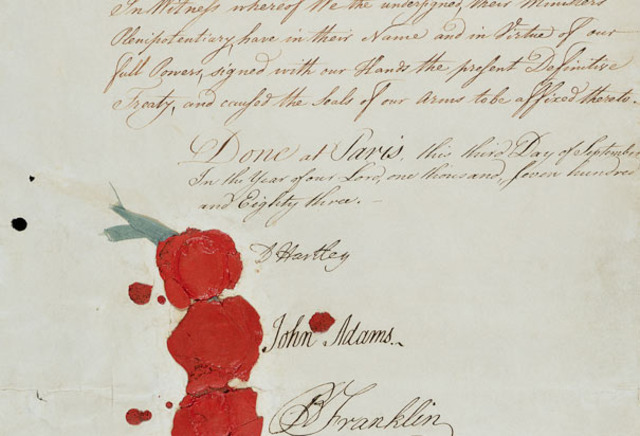 In Witness whereof We the undersigned, their Ministers
Plenipotentiary, have in their Name and in Virtue of our
full Powers, signed with our Hands the present Definitive
Treaty, and caused the Seals of our Arms to be affixed thereto.
Done at Paris, this third Day of September
In the Year of our Lord, one thousand, seven hundred
and Eighty three. _
D Hartley
John Adams.
B Franklin